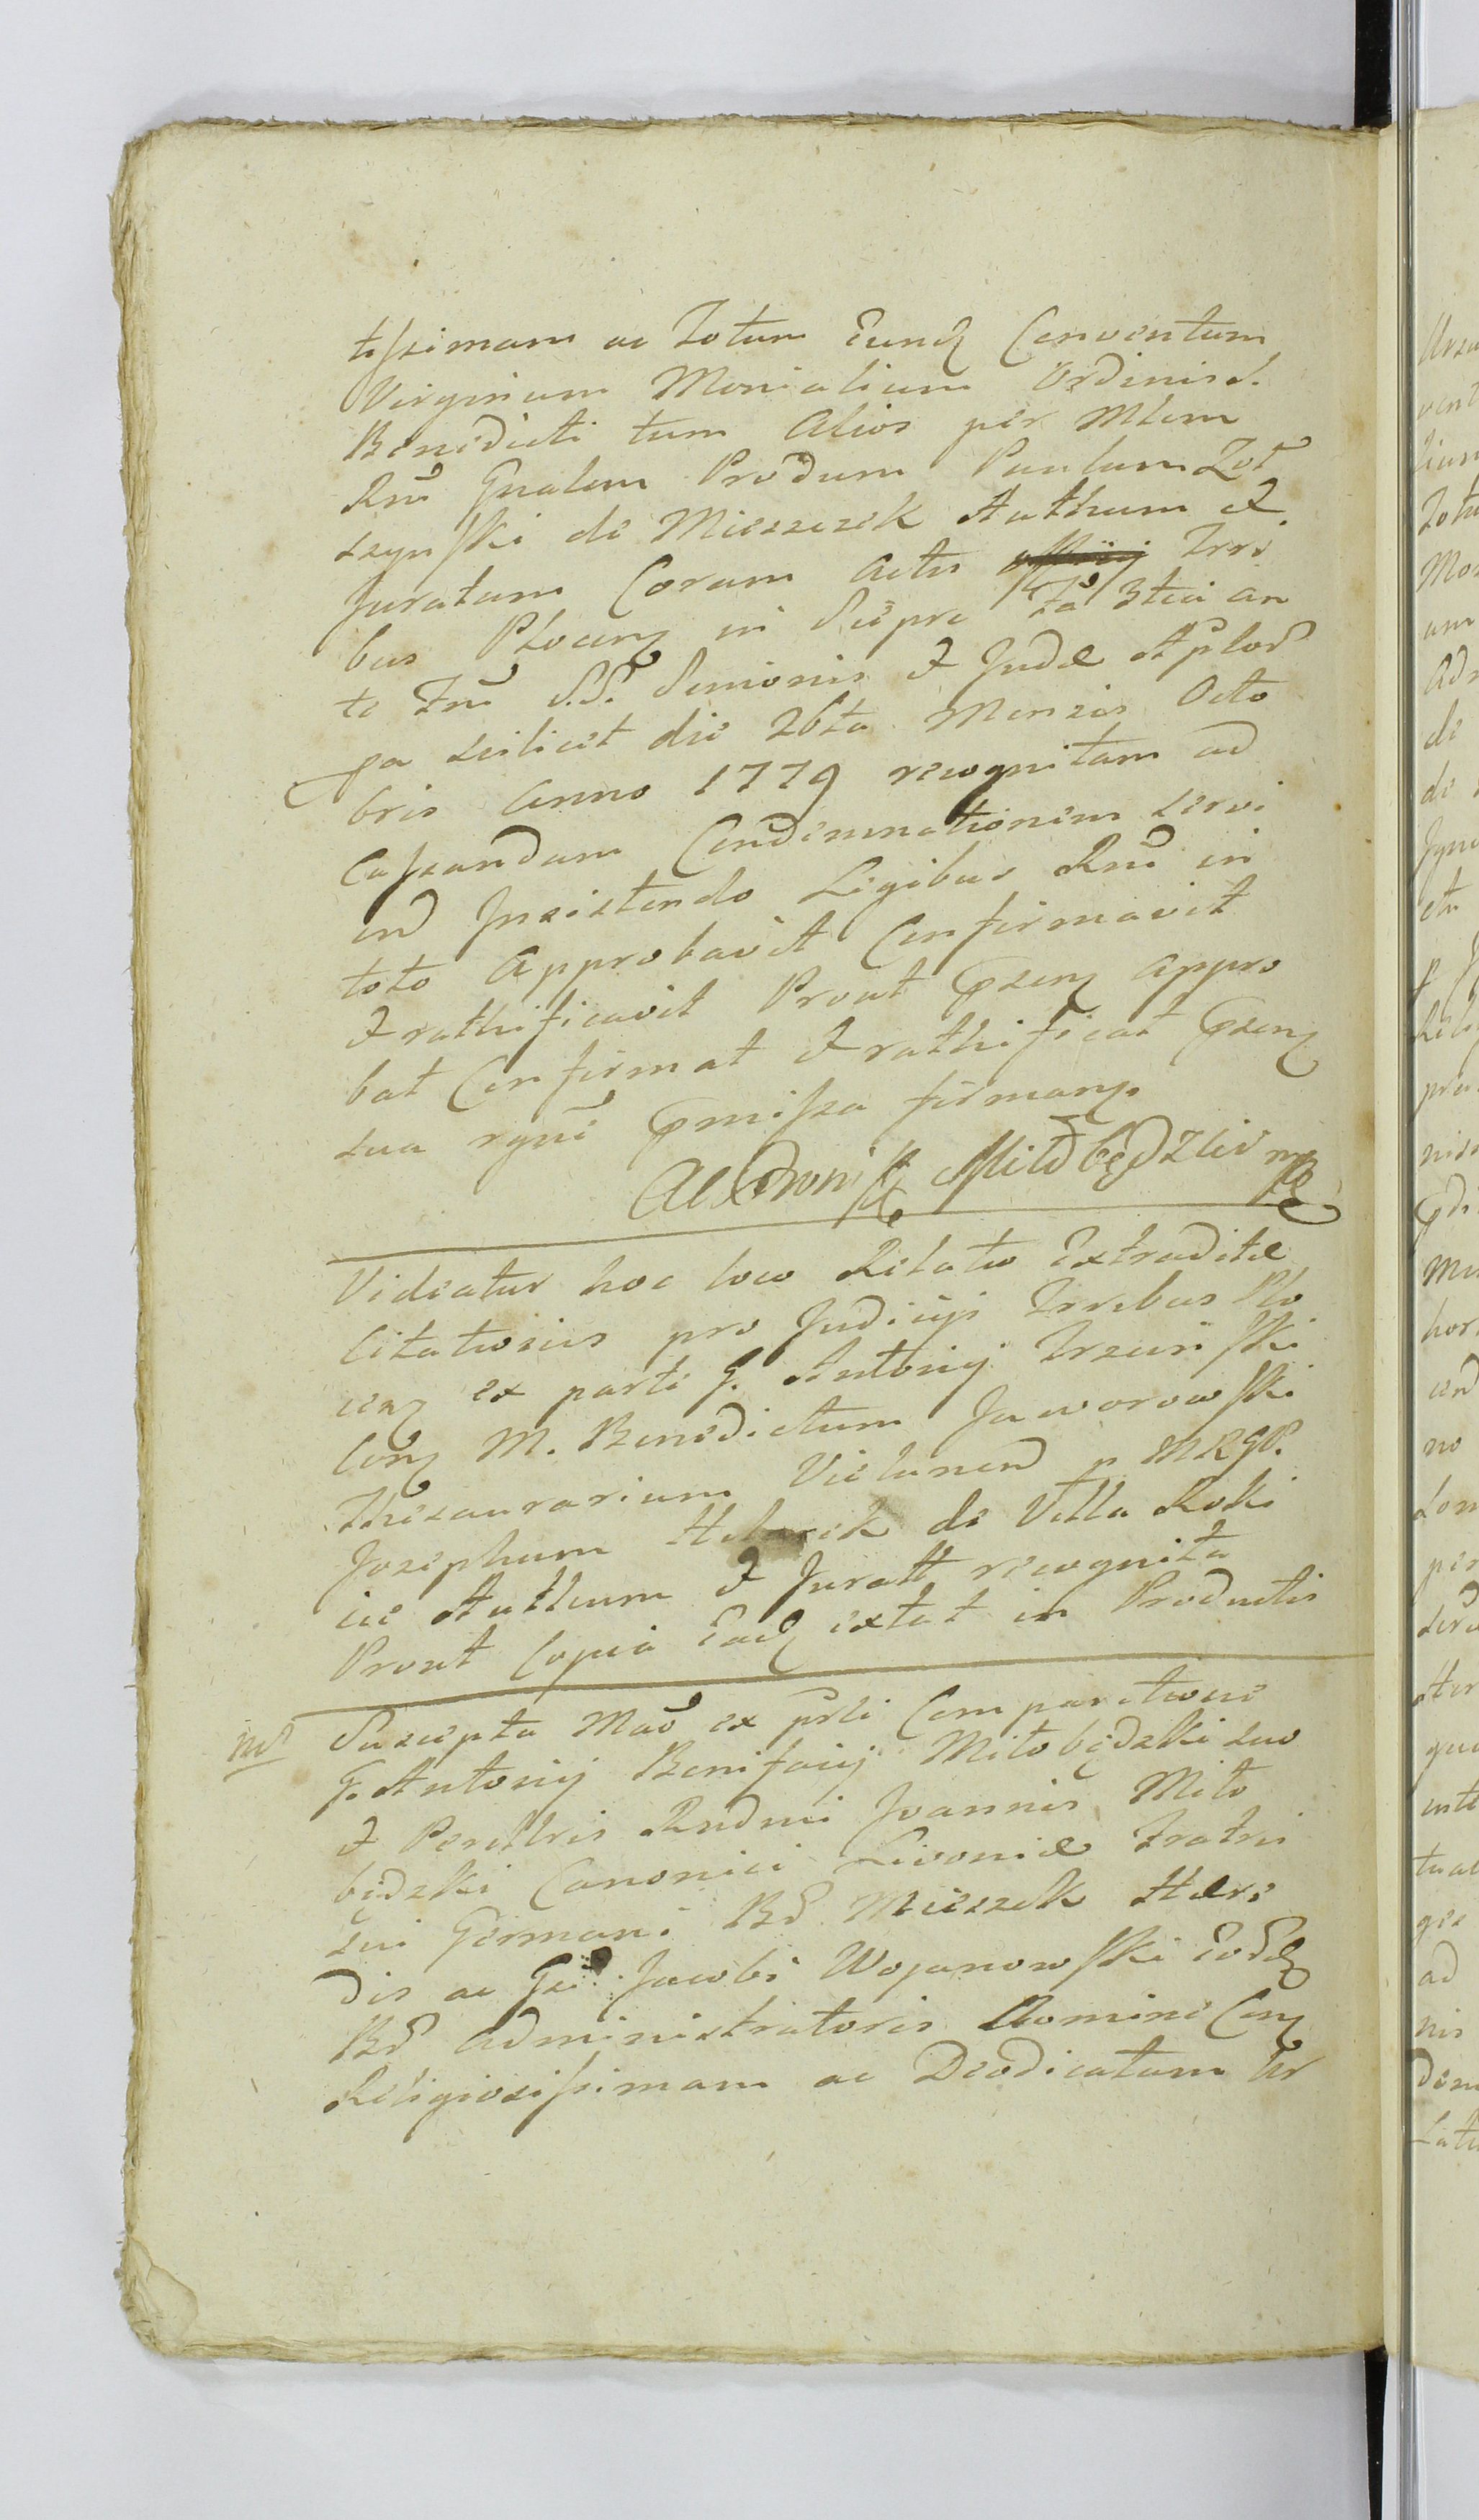 tissimam ac Totum Eundq Conventum
Virginum Monialium Ordinis S.
Benedicti tum Alios per Mlem
Rni Gnalem Produm Paulum Zot
szynski de Mieszczek Authum &
Juratum Coram Actis Trri
bus Plocenq in Sierpc fa 3tia an
te Fm S.S. Simonis & Judæ Aplor
pa scilicet die 26ta Mensis Octo
bris Anno 1779 recognitam ad
Cassandam Condemnationem servi
end Insistendo Legibus Rni in
toto Approbavit Confirmavit
& rathificavit Prout pñsenq appro
bat Confirmat & rathificat pñsenq
sua rgni pmissa firmanq
Miłobędzki mp
Videatur hoc loco Relatio Extraditæ
Citationis pro Judicijs Trrbus Plo
cenq ex parte G. Antonij Trzcinski
Conq M. Benedictum Jaworowski
Thesaurarium Vielunend p MRGP.
Josephum de Villa Roki
cie Authum & Juratt recognita
Prout Copia Eadq extat in Productis
Suscepta Mao ex psli Comparitione
G. Antonij Benifacij Miłobędzki suo
& Perillris Rndmi Joannis Miło
będzki Canonici Livoniæ Fratris
sui Germani Bd Mieszek Hære
dis ac Jacobi Wojanowski Eodq
Bd Administratoris Nomine Conq
Religiosissimam ac Deodicatam Ur